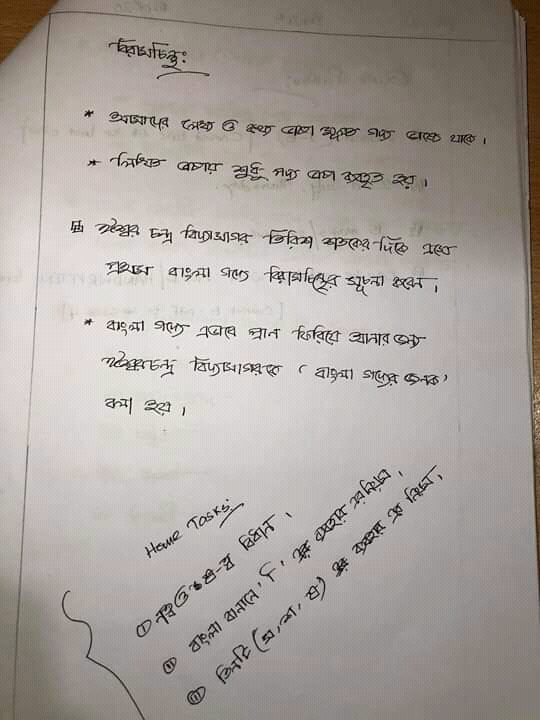 বিরামচিহ্ন:
* আমাদের লেখ্য ও কথ্য ভাষা মূলত গদ্য হয়ে থাকে।
* লিখিত ভাষার শুধু গদ্য ভাষা ব্যবহৃত হয়।
ঈশ্বর চন্দ্র বিদ্যাসাগর তিরিশ শতকের দিকে এসে
প্রথম বাংলা গদ্যে বিরামচিহ্নের সূচনা করেন।
* বাংলা গদ্যে এভাবে প্রান ফিরিয়ে আনার জন্য
ঈশ্বরচন্দ্র বিদ্যাসাগরকে 'বাংলা গদ্যের জনক'
বলা হয়।
Home Tasks:
① ণত্ব ও ষ-ত্ব বিধান।
② বাংলা বানানে, ি, এর ব্যবহার এর নিয়ম।
③ তিনটি (স, শ, ষ) এর ব্যবহার এর নিয়ম।